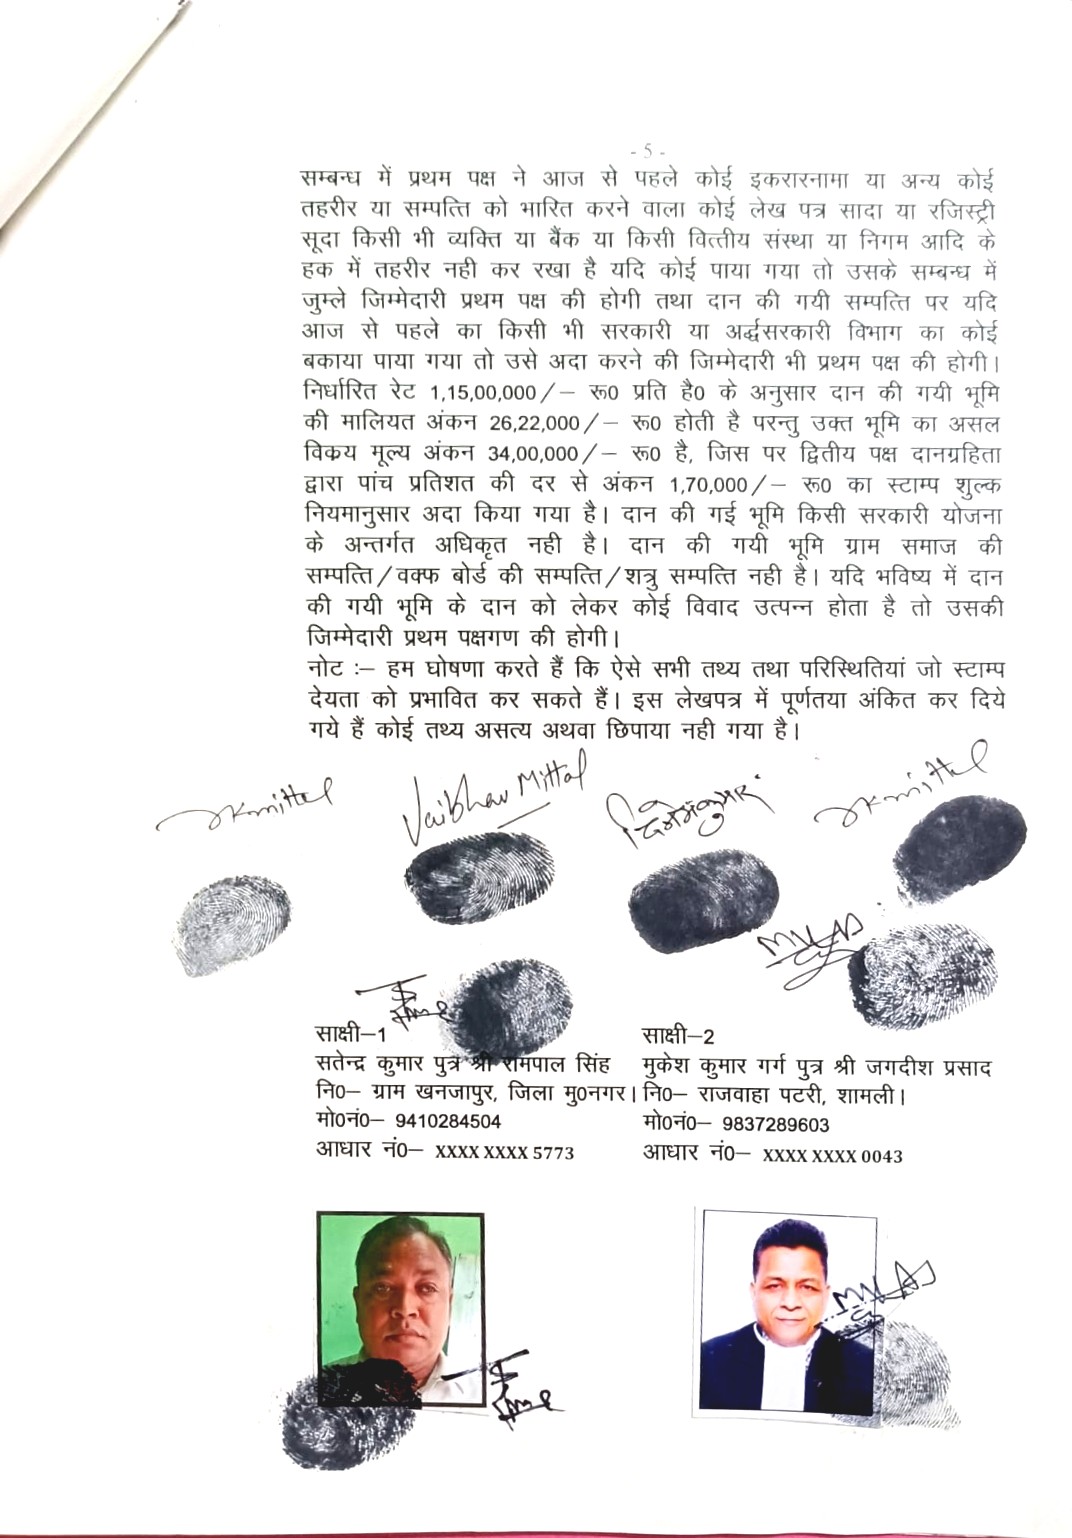 - 5 -
सम्बन्ध में प्रथम पक्ष ने आज से पहले कोई इकरारनामा या अन्य कोई
तहरीर या सम्पत्ति को भारित करने वाला कोई लेख पत्र सादा या रजिस्ट्री
सूदा किसी भी व्यक्ति या बैंक या किसी वित्तीय संस्था या निगम आदि के
हक में तहरीर नही कर रखा है यदि कोई पाया गया तो उसके सम्बन्ध में
जुम्ले जिम्मेदारी प्रथम पक्ष की होगी तथा दान की गयी सम्पत्ति पर यदि
आज से पहले का किसी भी सरकारी या अर्द्धसरकारी विभाग का कोई
बकाया पाया गया तो उसे अदा करने की जिम्मेदारी भी प्रथम पक्ष की होगी।
निर्धारित रेट 1,15,00,000/– रू0 प्रति है0 के अनुसार दान की गयी भूमि
की मालियत अंकन 26,22,000/– रू0 होती है परन्तु उक्त भूमि का असल
विक्रय मूल्य अंकन 34,00,000/– रू0 है, जिस पर द्वितीय पक्ष दानग्रहिता
द्वारा पांच प्रतिशत की दर से अंकन 1,70,000/– रू0 का स्टाम्प शुल्क
नियमानुसार अदा किया गया है। दान की गई भूमि किसी सरकारी योजना
के अन्तर्गत अधिकृत नही है। दान की गयी भूमि ग्राम समाज की
सम्पत्ति/वक्फ बोर्ड की सम्पत्ति/शत्रु सम्पत्ति नही है। यदि भविष्य में दान
की गयी भूमि के दान को लेकर कोई विवाद उत्पन्न होता है तो उसकी
जिम्मेदारी प्रथम पक्षगण की होगी।
नोट :– हम घोषणा करते हैं कि ऐसे सभी तथ्य तथा परिस्थितियां जो स्टाम्प
देयता को प्रभावित कर सकते हैं। इस लेखपत्र में पूर्णतया अंकित कर दिये
गये हैं कोई तथ्य असत्य अथवा छिपाया नही गया है।
Vaibhav Mittal
साक्षी–1
सतेन्द्र कुमार पुत्र श्री रामपाल सिंह
नि0– ग्राम खनजापुर, जिला मु0नगर।
मो0नं0– 9410284504
आधार नं0– XXXX XXXX 5773
साक्षी–2
मुकेश कुमार गर्ग पुत्र श्री जगदीश प्रसाद
नि0– राजवाहा पटरी, शामली।
मो0नं0– 9837289603
आधार नं0– XXXX XXXX 0043